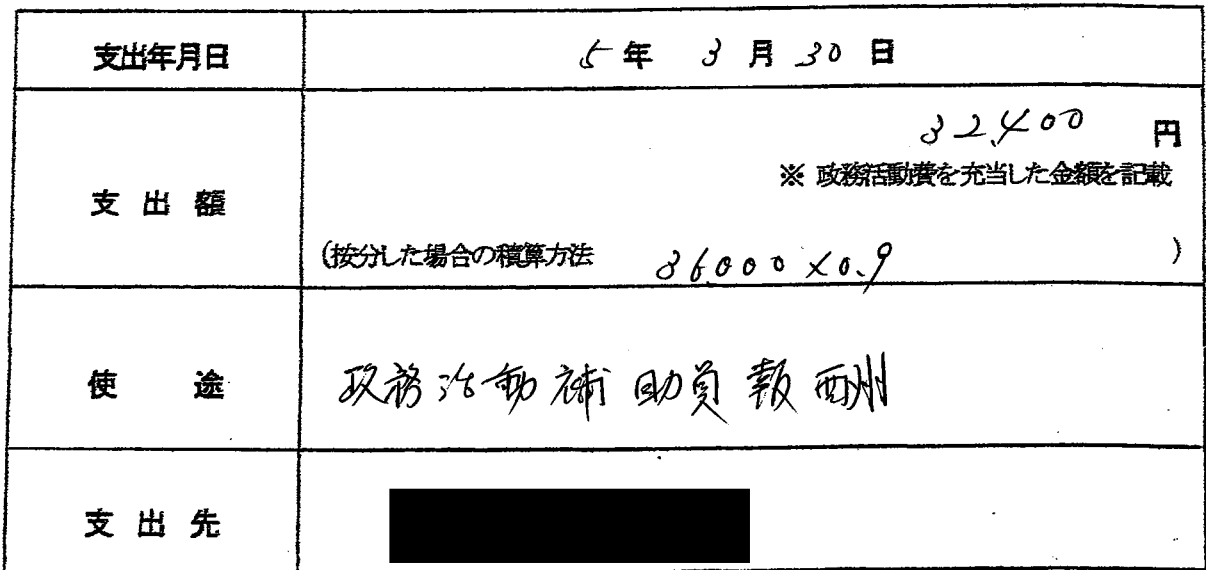 支出年月日 5年 3月30日
32,400 円
※ 政務活動費を充当した金額を記載
支出額
(按分した場合の積算方法 36,000×0.9 )
使途 政務活動補助員報酬
支出先